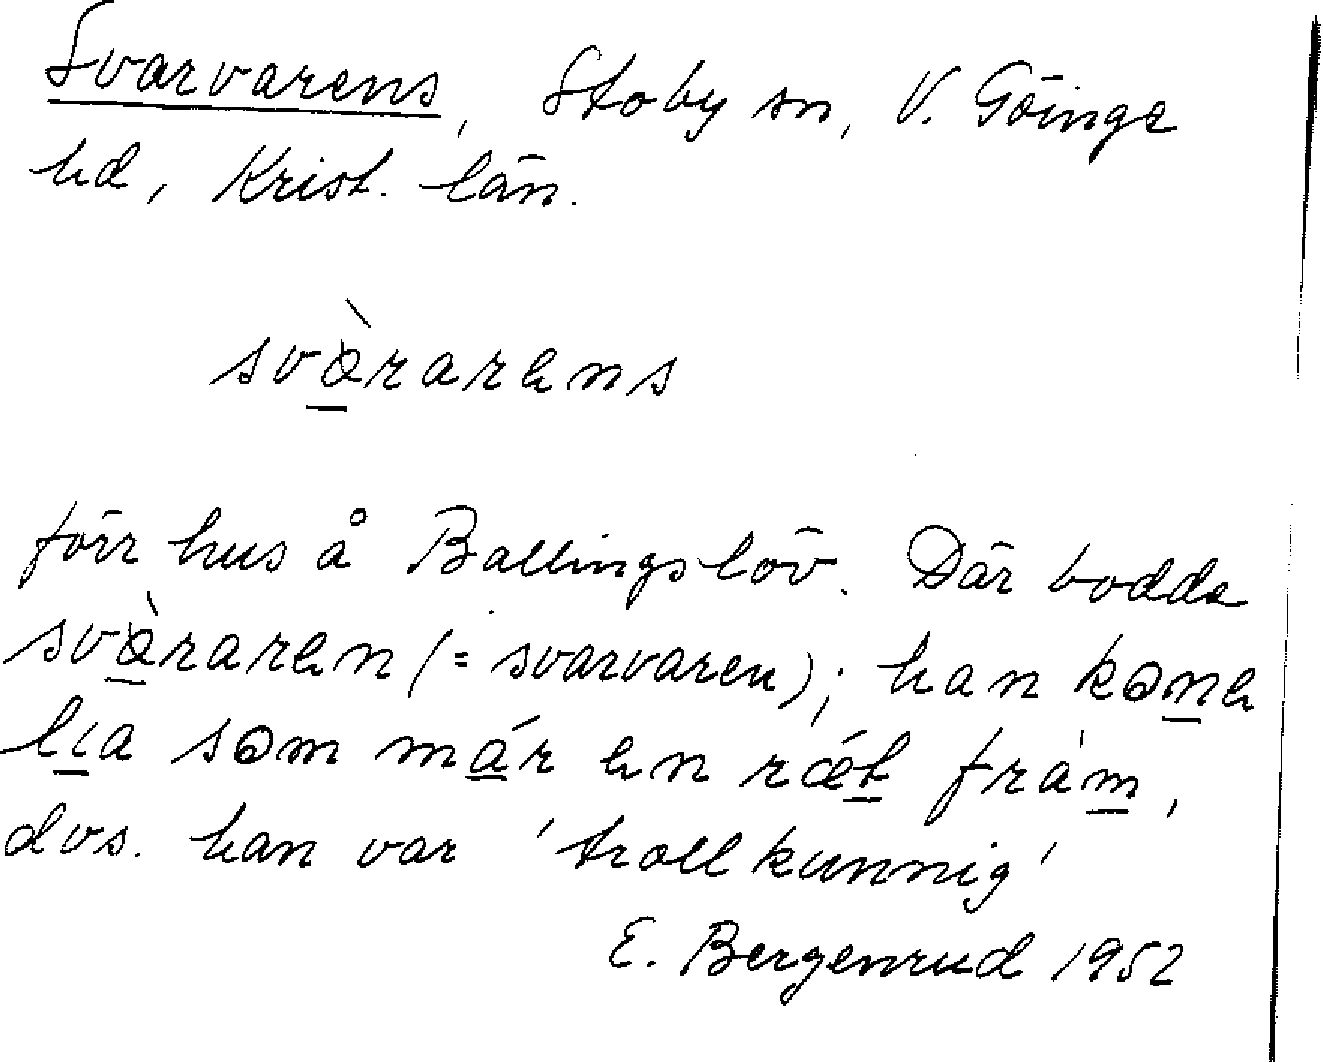 Svarvarens, Stoby sn, V. Göinge
hd, Krist. län.
svàrarens
förr hus å Ballingslöv. Där bodde
svàraren (= svarvaren); han kone
lia som már en rǽt fràm,
dvs. han var 'trollkunnig'
E. Bergenrud 1952